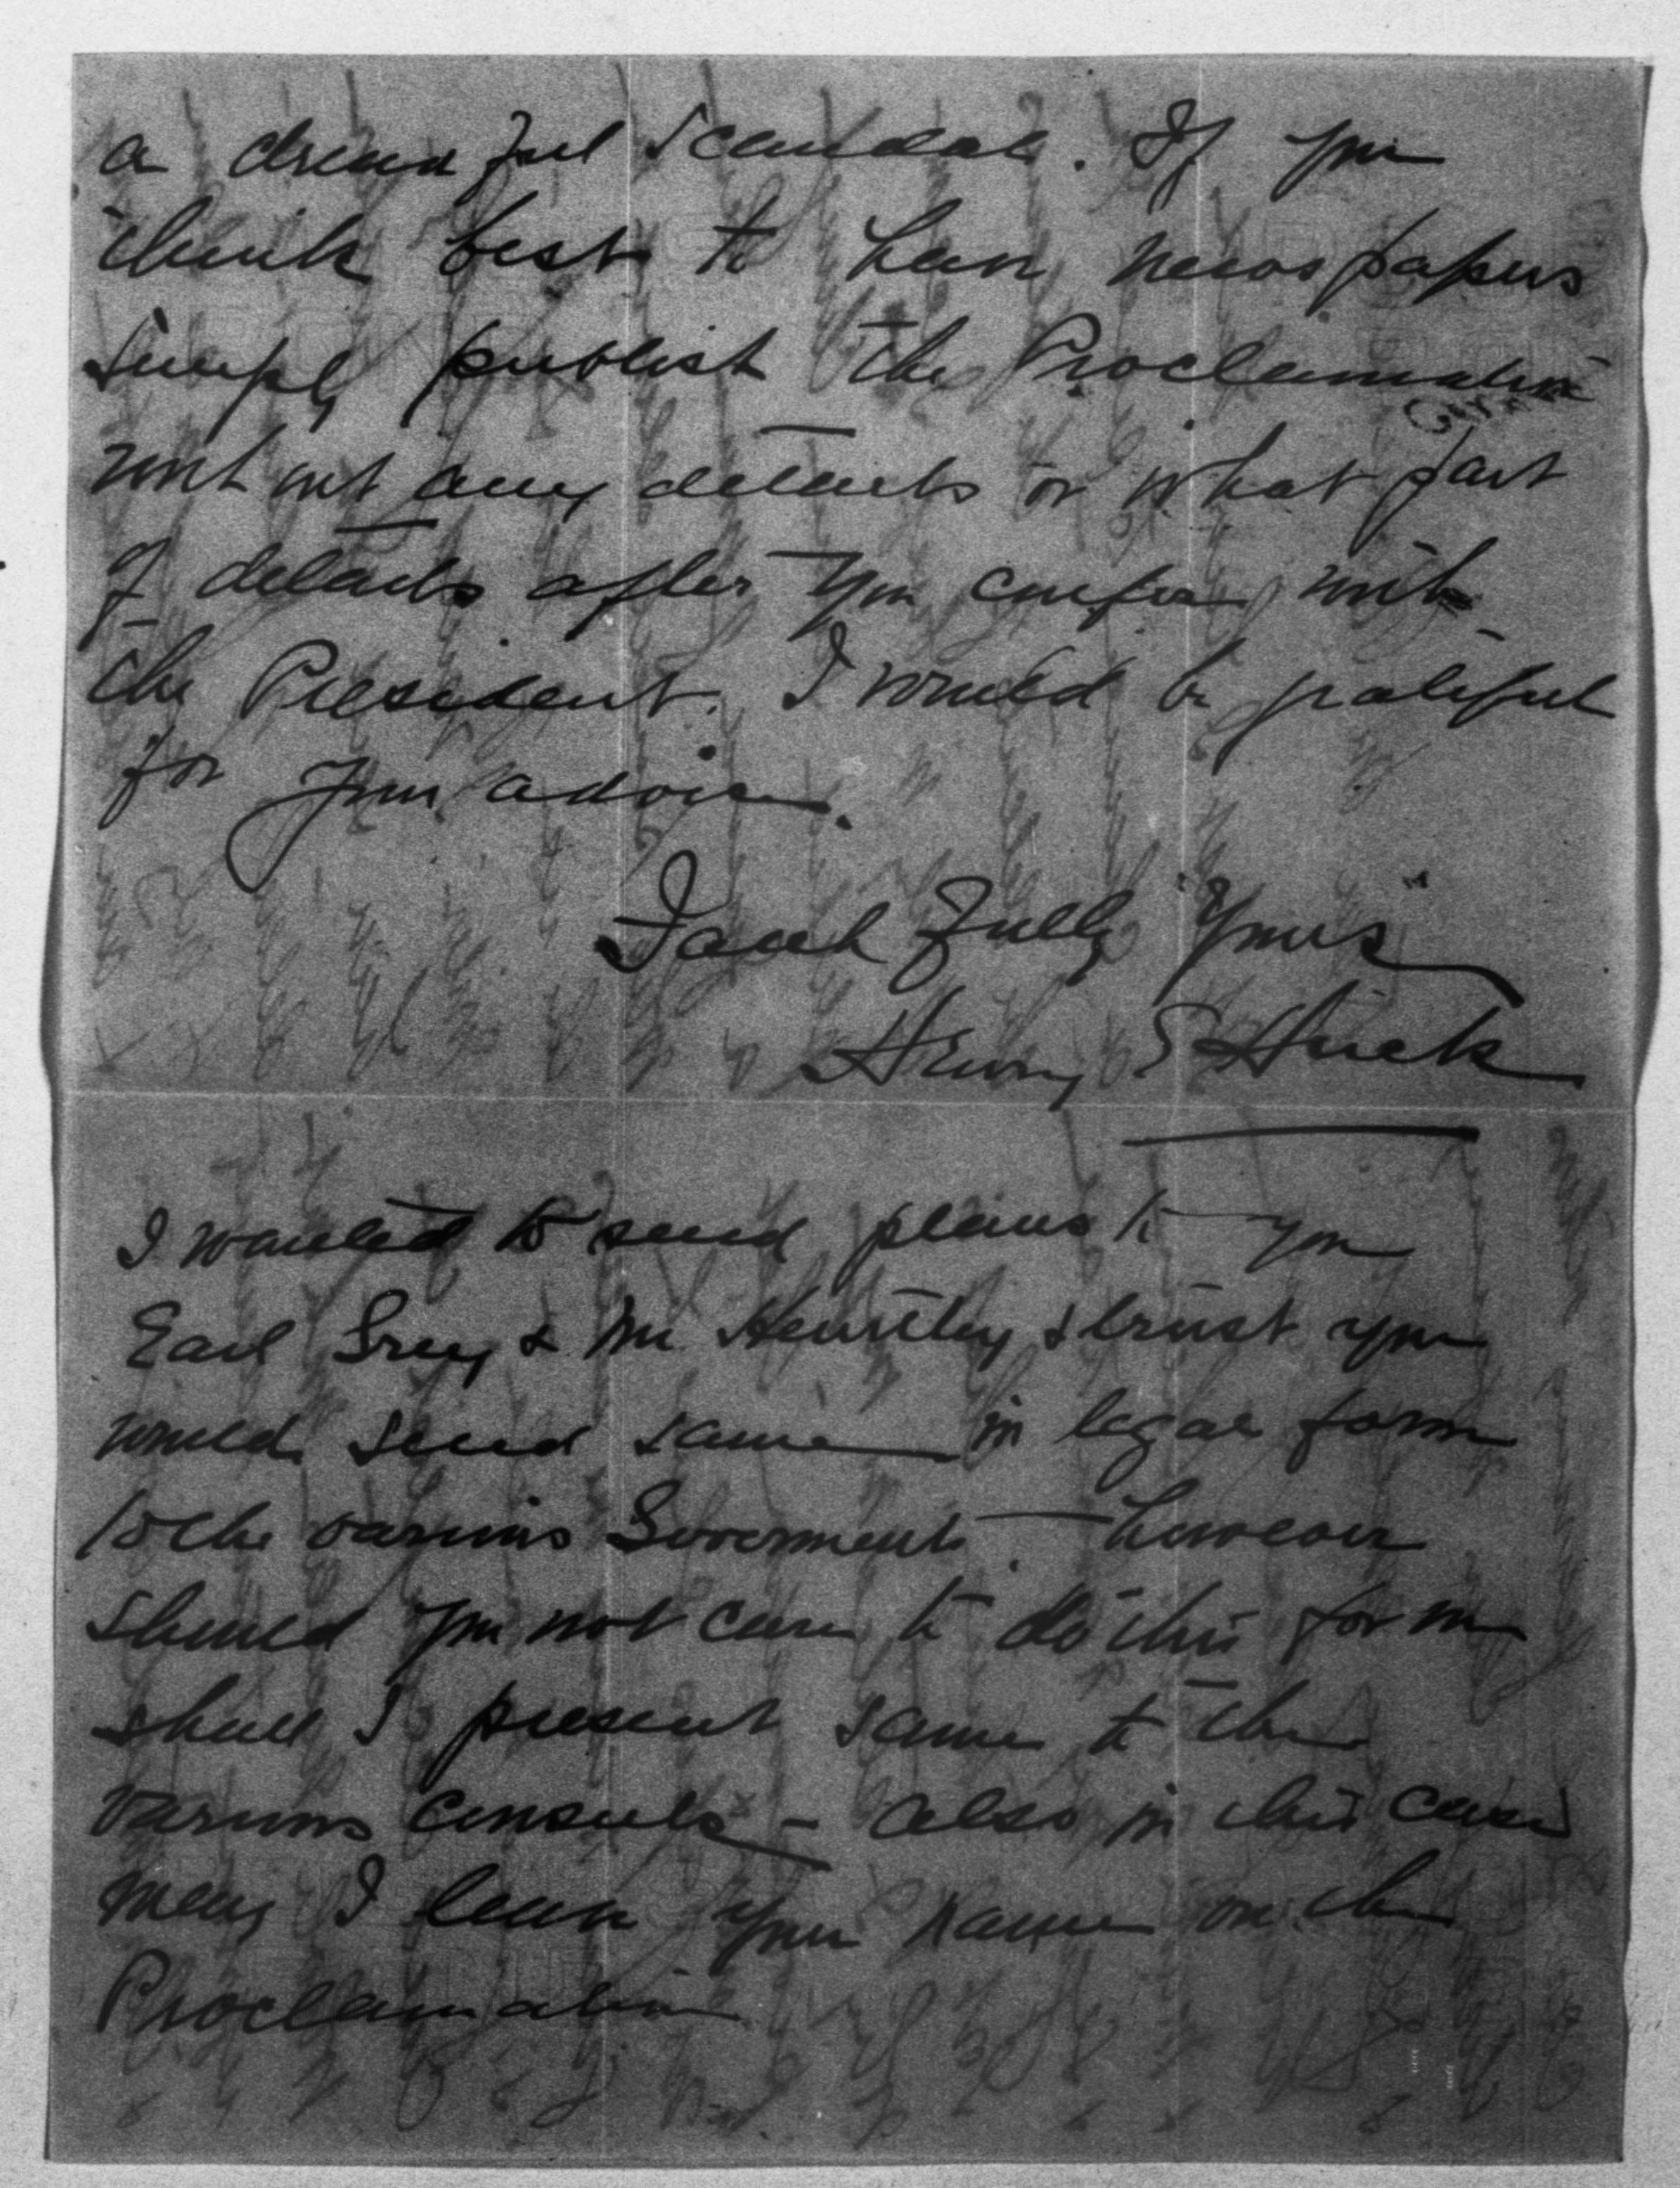 a dreadful scandal. If you
think best to have newspapers
simply publish the Proclamation
without any details or what part
of details after you confer with
the President. I would be grateful
for your advice.
Faithfully Yours
Henry S Huck
I wanted to send plans to you
Earl Grey & Mr. & trust you
would send same in legal form
to the various Goverments. however
should you not care to do this for me
shall I present same to the
various Consuls - also in this case
may I leave your name on the
Proclamation